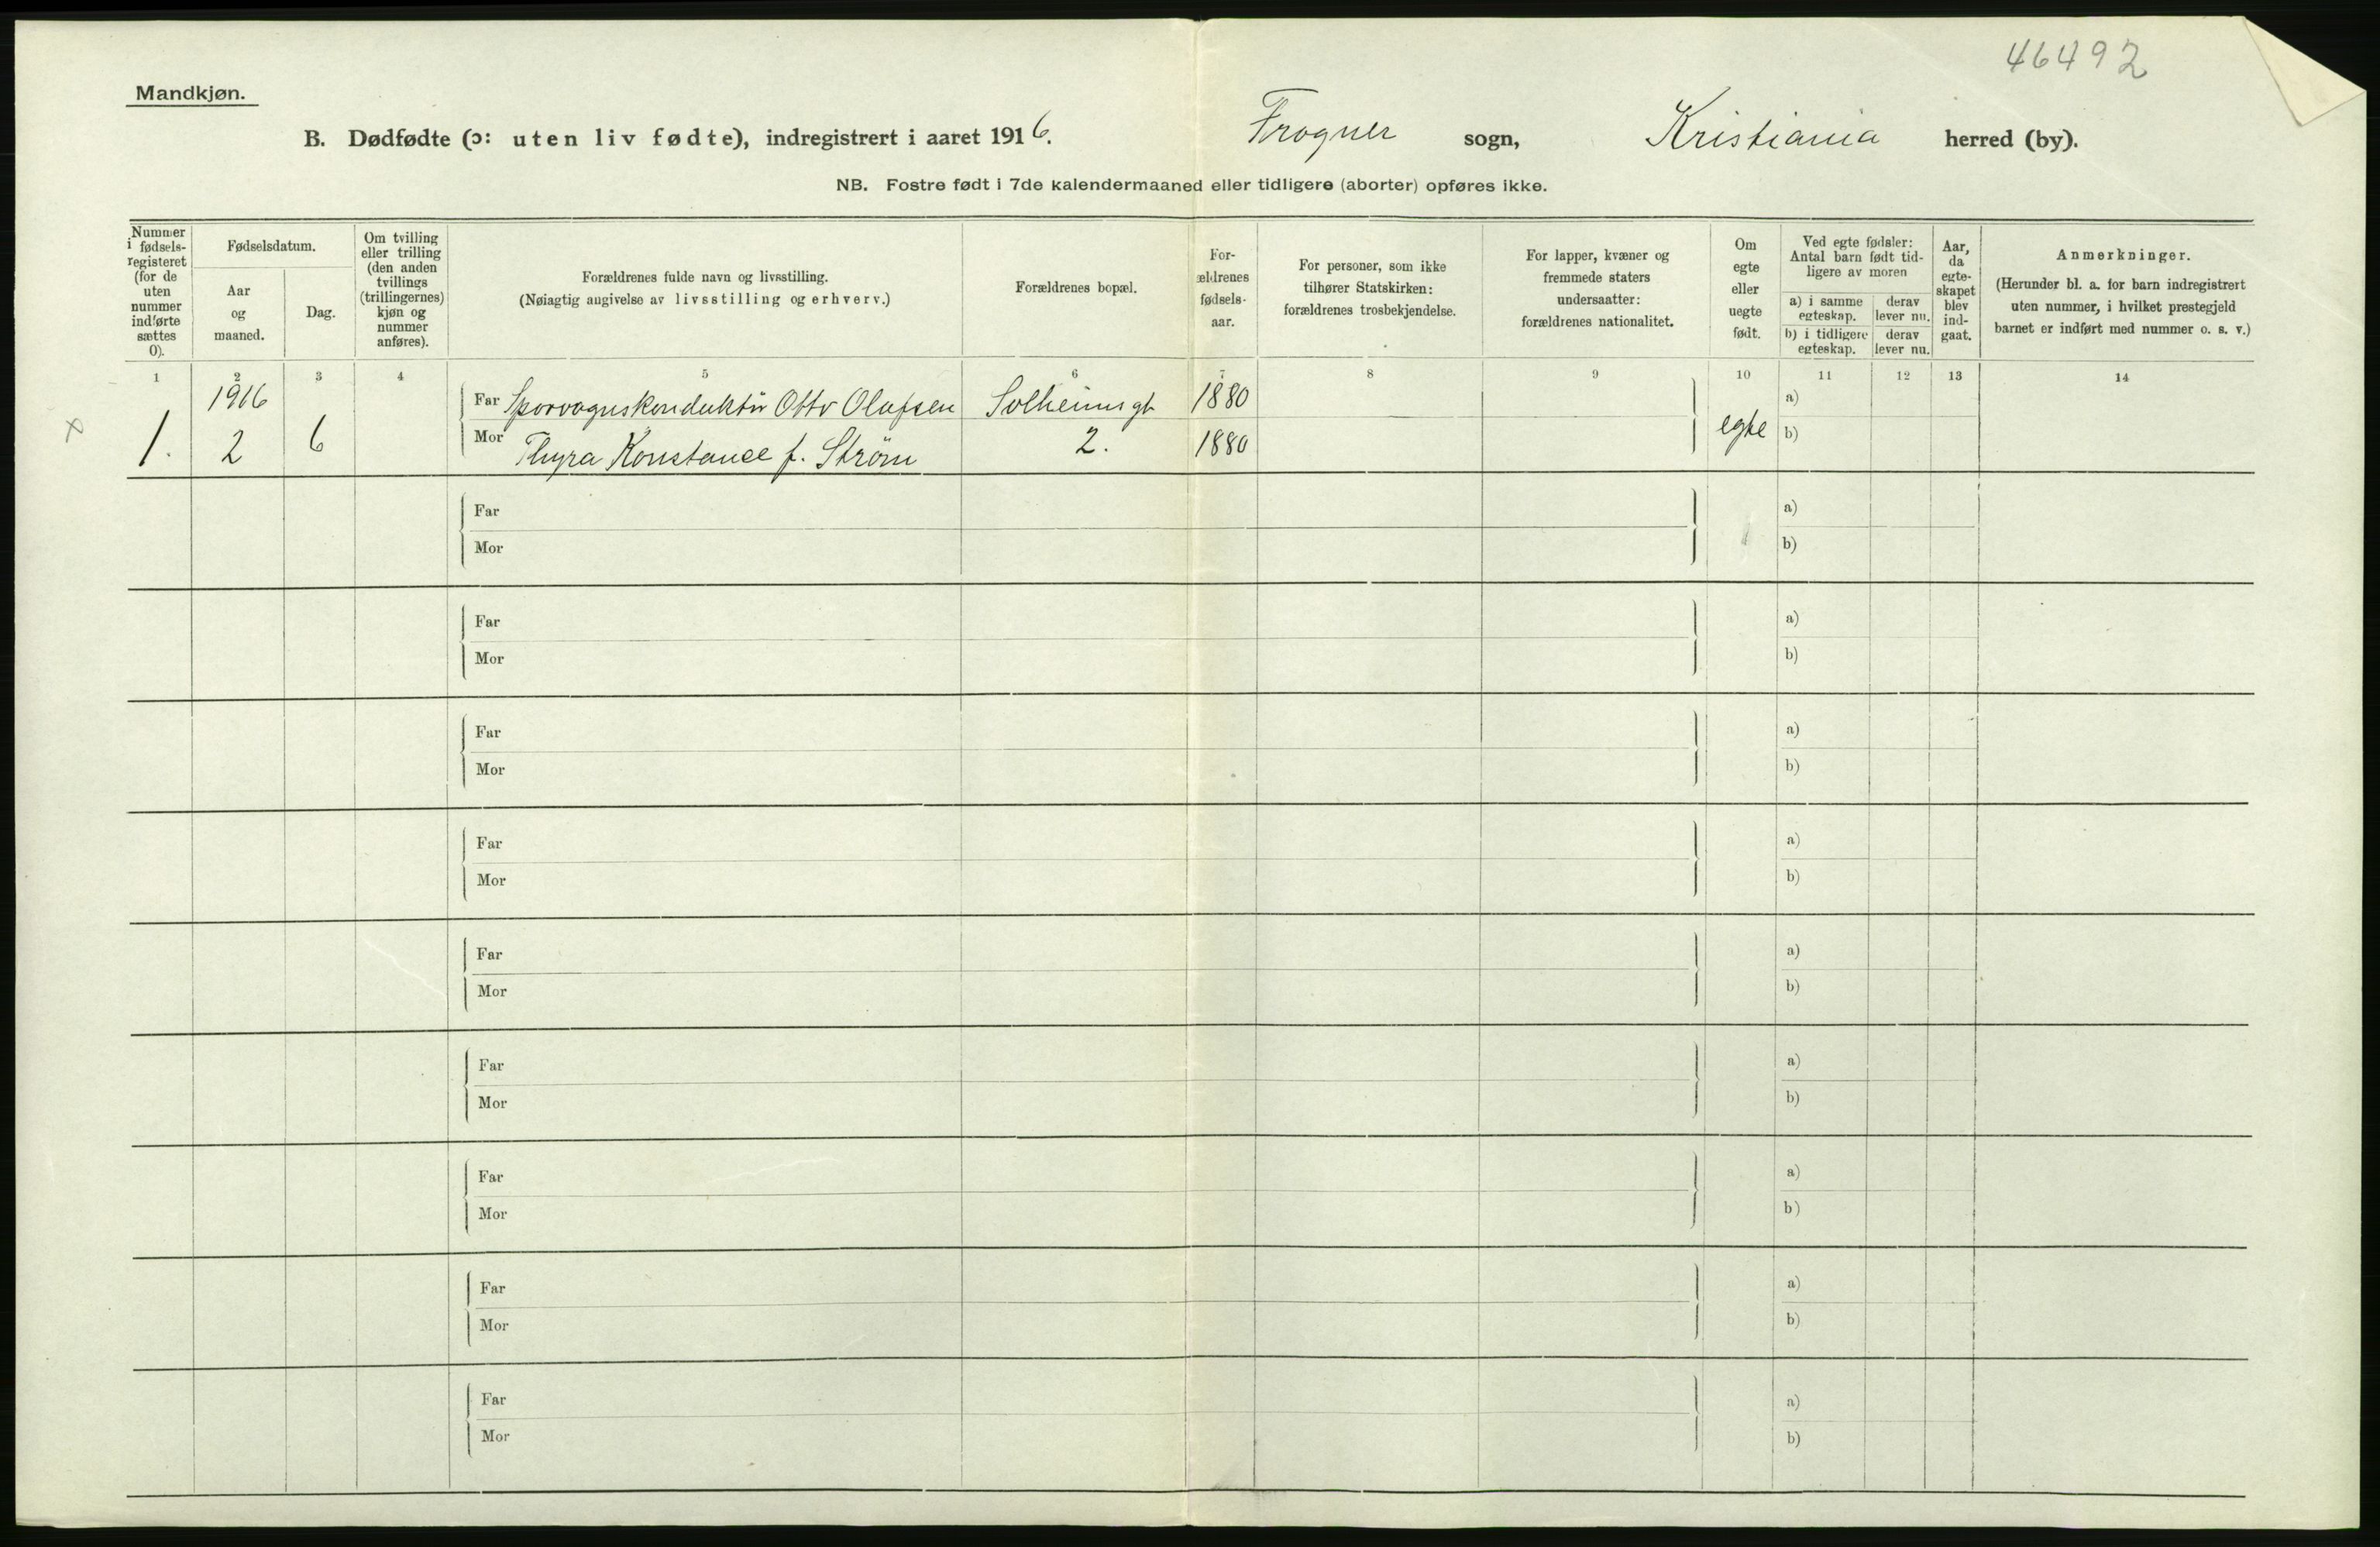 46492
Mandkjøn.
B. Dødfødte (ɔ: uten liv fødte), indregistrert i aaret 1916. Frogner sogn, Kristiania herred (by).
NB. Fostre født i 7de kalendermaaned eller tidligere (aborter) opføres ikke.
Nummer
i fødsels-
registeret
(for de
uten
nummer
indførte
sættes
0).
Fødselsdatum.
Aar
og
maaned.
Dag.
Om tvilling
eller trilling
(den anden
tvillings
(trillingernes)
kjøn og
nummer
anføres).
Forældrenes fulde navn og livsstilling.
(Nøiagtig angivelse av livsstilling og erhverv.)
Forældrenes bopæl.
For-
ældrenes
fødsels-
aar.
For personer, som ikke
tilhører Statskirken:
forældrenes trosbekjendelse.
For lapper, kvæner og
fremmede staters
undersaatter:
forældrenes nationalitet.
Om
egte
eller
uegte
født.
Ved egte fødsler:
Antal barn født tid-
ligere av moren
a) i samme
egteskap.
derav
lever nu.
b) i tidligere
egteskap.
derav
lever nu.
Aar,
da
egte-
skapet
blev
ind-
gaat.
Anmerkninger.
(Herunder bl. a. for barn indregistrert
uten nummer, i hvilket prestegjeld
barnet er indført med nummer o. s. v.)
1 2 3 4 5 6 7 8 9 10 11 12 13 14
1916 Far Sporvognskonduktør Otto Olafsen Solheimsgt 1880 a)
x 1. 2 6 Mor Thyra Konstance f. Strøm 2. 1880 egte b)
Far a)
Mor b)
Far a)
Mor b)
Far a)
Mor b)
Far a)
Mor b)
Far a)
Mor b)
Far a)
Mor b)
Far a)
Mor b)
Far a)
Mor b)
Far a)
Mor b)